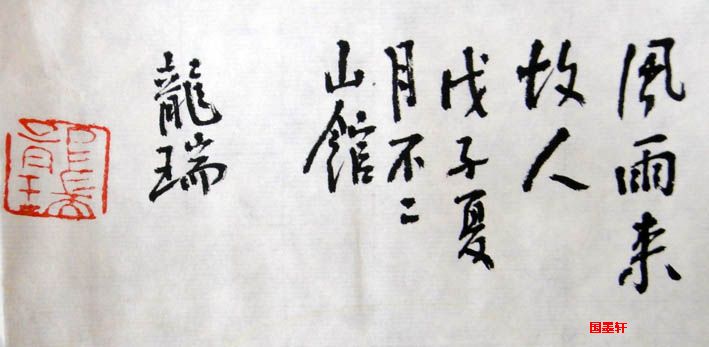 風雨来
故人
戊子夏
月不二
山館
龍瑞
国墨轩